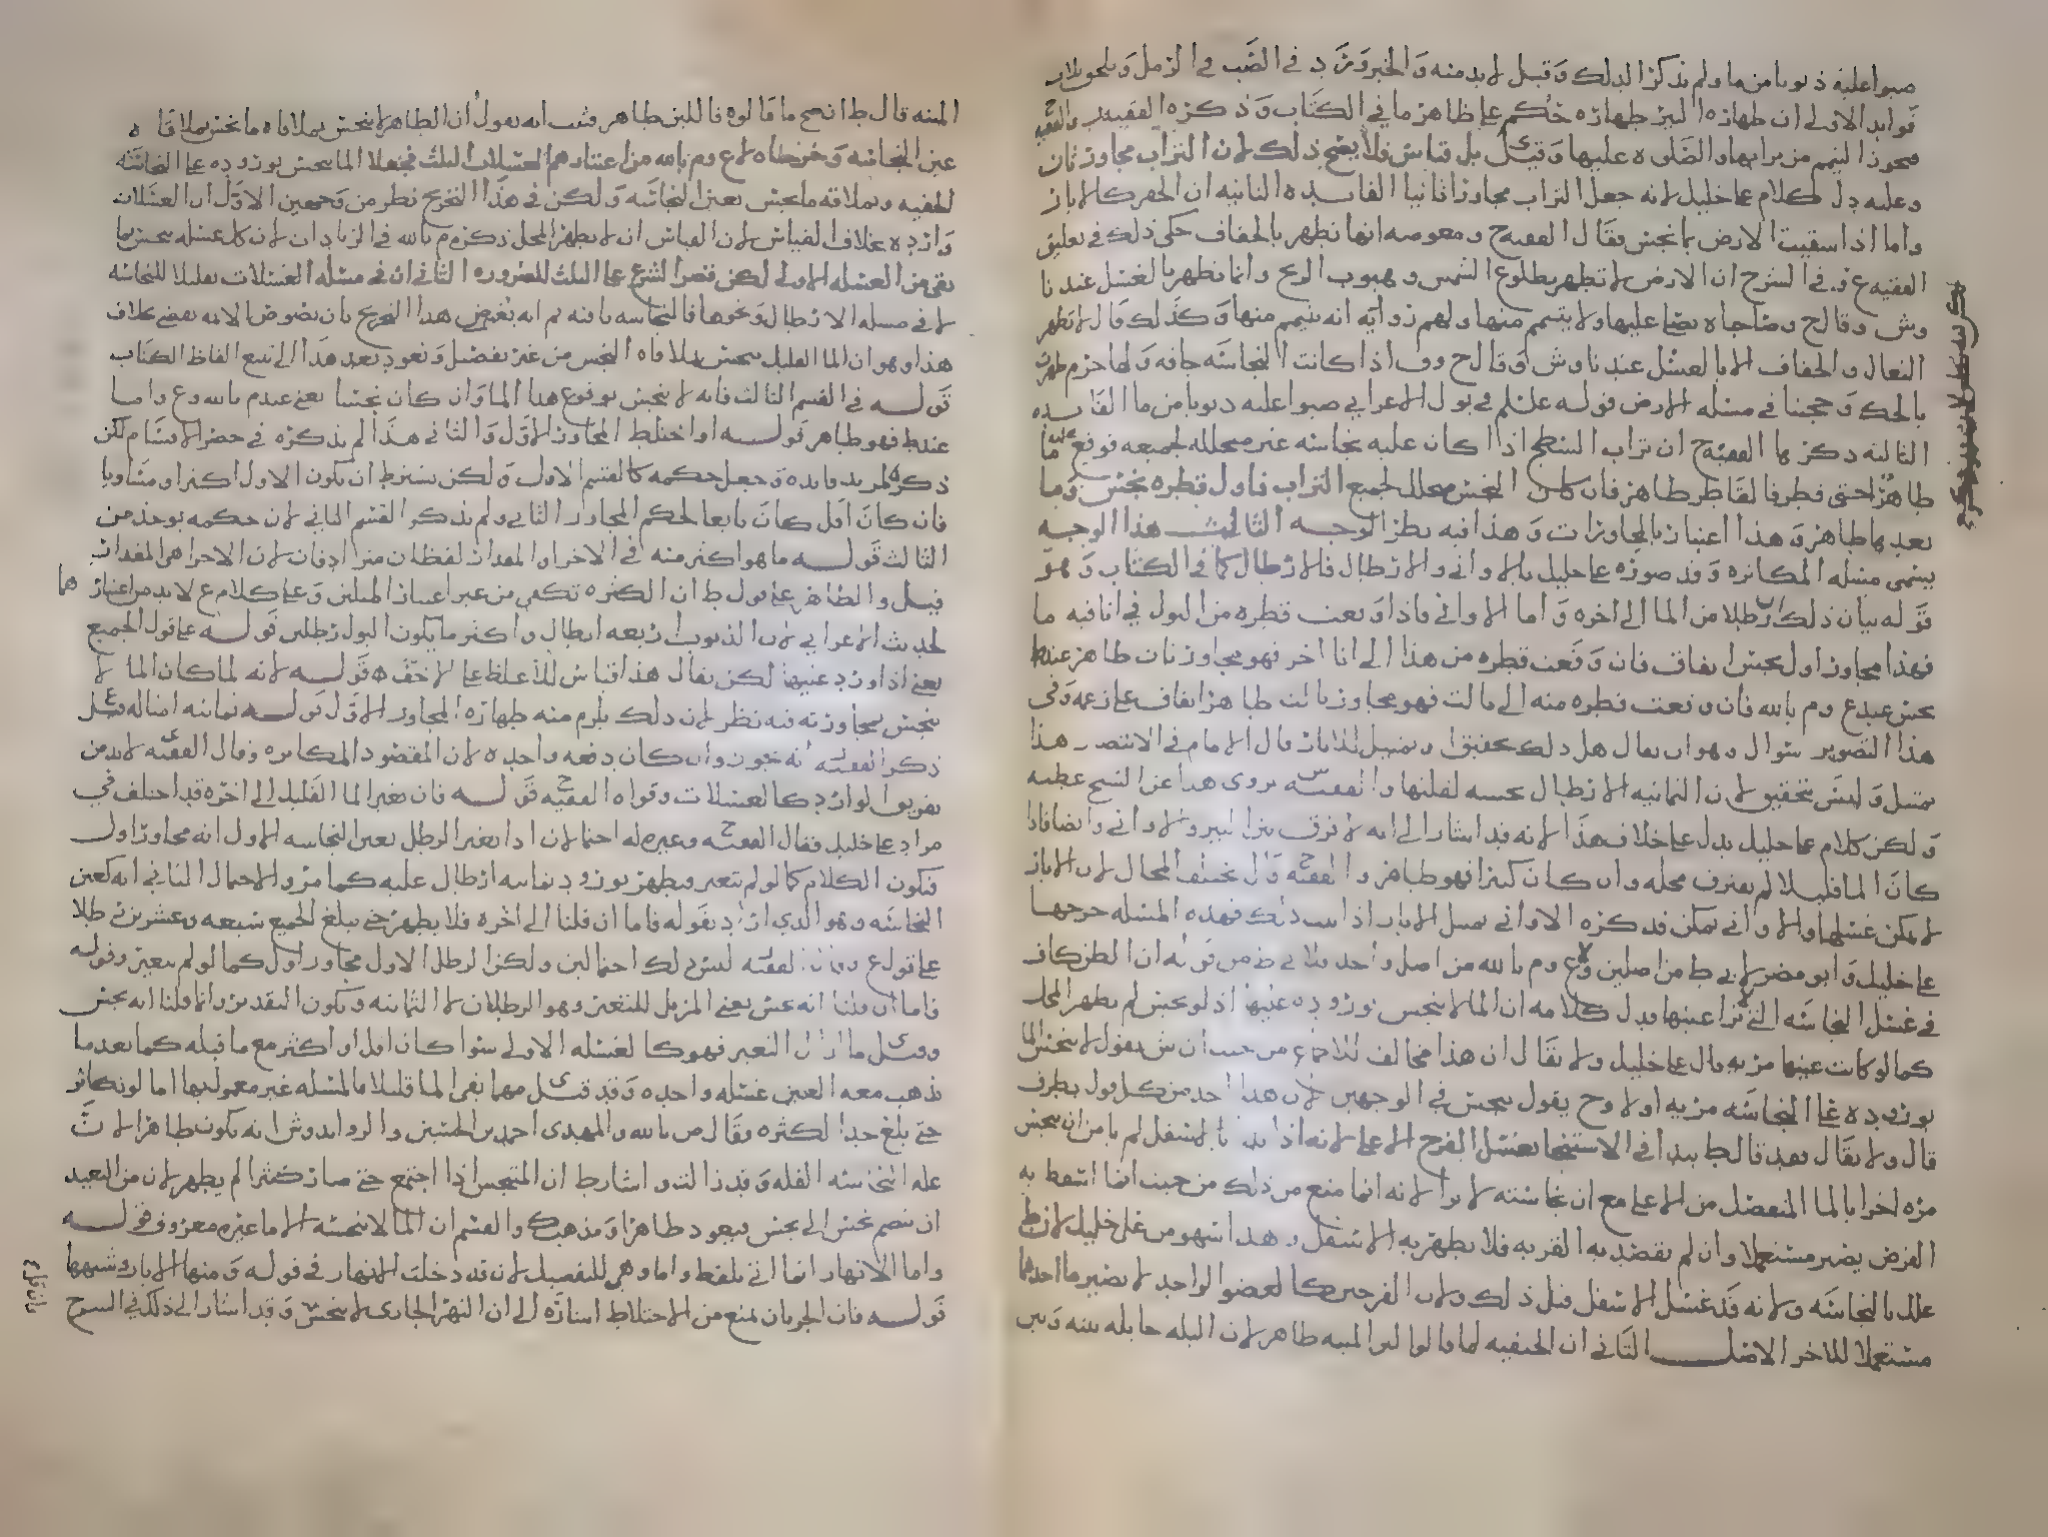 صبوا عليه ذنوبا من ما ولم يذكر الدلك وقيل لا بد منه والخبر ورد في الصب في الرمل
فوايد الاولى ان طهارة البير طهارة حكم على ظاهر ما في الكتاب وذكره الفقيه
فيجوز التيمم من ترابها والصلوه عليها وقيل بل قياس فلا يصح ذلك لان التراب مجاور ثان
وعليه دل كلام علي خليل لانه جعل التراب مجاورا ثانيا الفايده الثانيه ان الحفر كالابار
واما اذا سقيت الارض بما نجس فقال الفقيه ح ومعوضه انها تطهر بالجفاف حكى ذلك في تعليق
الفقيه ع وفي الشرح ان الارض لا تطهر بطلوع الشمس وهبوب الريح وانما تطهر بالغسل عندنا
وش وقال ح وصاحباه يصلى عليها ولا يتيمم منها ولهم روايه انه يتيمم منها وكذلك قال لا تطهر
النعال والخفاف الا بالغسل عندنا وش وقال ح وف اذا كانت النجاسه جافه ولها جرم طهرت
بالحك وحجتنا في مسله الارض قوله علىلم في بول الاعرابي صبوا عليه ذنوبا من ما الفايده
الثالثه ذكرها الفقيه ح ان تراب السطح اذا كان عليه نجاسه غير متخلله لجميعه فوقع عليه ما
طاهرا حتى قطر فالقاطر طاهر فان كان النجس متخللا لجميع التراب فاول قطره نجس وما
بعدها طاهر وهذا اعتبار بالمجاورات وهذا فيه نظر الوجه الثالث هذا الوجه
يسمى مسله المكاثره وقد صوره علي خليل بالاواني والارطال فالارطال كما في الكتاب وهو
قوله بيان ذلك ان رطلا من الما الى اخره واما الاواني فاذا وقعت قطره من البول في انا فيه ما
فهذا مجاور اول نجس اتفاق فان وقعت قطره من هذا الى انا اخر فهو مجاور ثان طاهر عند ط
نجس عند ع وم بالله فان وقعت قطره منه الى ثالث فهو مجاور ثالث طاهر اتفاق على زعمه وفي
هذا التصوير سوال وهو ان يقال هل ذلك تحقيق او تمثيل للابار قال الامام في الانتصار هذا
تمثيل وليس بتحقيق لان الثمانيه الارطال نجسه لقلتها والفقيه س يروى هذا عن الشيخ عطيه
ولكن كلام علي خليل يدل على خلاف هذا لانه قد اشار الى انه لا فرق بين البير والاواني وايضا فاذا
كان الما قليلا لم يفترق محله وان كان كثيرا فهو طاهر والفقيه ح قال يختلف المحال لان الابار
لا يمكن غسلها والاواني يمكن فذكره الاواني تمثيل الابار اذا ثبت ذلك فهذه المسله خرجها
علي خليل وابو مضر لابي ط من اصلين ولا ع وم بالله من اصل واحد من قوله ان الطرف
في غسل النجاسه التي ترا عينها فدل كلامه ان الما لا ينجس بوروده عليها اذ لو نجس لم يطهر المحل
كما لو كانت عينها مرئيه قال علي خليل ولا يقال ان هذا مخالف للاجماع من حيث ان ش يقول لا ينجس الما
بوروده على النجاسه مرئيه اولا وح يقول ينجس في الوجهين لان هذا اخذ من كل قول بطرف
قال ولا يقال بعد قال ط يبدا في الاستنجا بغسل الفرج الاعلى لانه اذا بدا بالاسفل لم يامن ان ينجس
مره اخرى بالما المنفصل من الاعلى مع ان نجاسته لا ترا لانه انما منع من ذلك من حيث انما اسقط به
الفرض يصير مستعملا وان لم يقصد به القربه فلا يطهر به الاسفل وهذا سهو من علي خليل لان ط
علل بالنجاسه ولانه قد غسل الاسفل قبل ذلك ولان الفرجين كالعضو الواحد لا يصير ما احدهما
مستعملا للاخر الاصل الثاني ان الحنفيه لما قالوا لبن الميته طاهر لان البله حايله بينه وبين
الميته قال ط ان صح ما قالوه فاللبن طاهر فثبت انه يقول ان الطاهر لا ينجس بملاقاه ما نجس بملاقاه
عين النجاسه وخرجاه لا ع وم بالله من اعتبارهم الغسلات الثلث فجعلا الما ينجس بوروده على النجاسه
الخفيه وبملاقه ما نجس بعين النجاسه ولكن في هذا التخريج نظر من وجهين الاول ان الغسلات
وارده بخلاف القياس لان القياس ان لا يطهر المحل ذكره م بالله في الزيادات لان كل غسله تنجس بما
بقى من الغسله الاولى لكن قصر الشرع على الثلث للضروره الثاني ان في مسله الغسلات تقليلا للنجاسه
لا في مسله الارطال ونحوها فالنجاسه باقيه ثم انه يعترض هذا التخريج بان نصوص الايمه تقضي بخلاف
هذا وهو ان الما القليل ينجس بملاقاه النجس من غير تفصيل ونعود بعد هذا الى تتبع الفاظ الكتاب
قوله في القسم الثالث فانه لا ينجس بوقوع هذا الما وان كان نجسا يعني عند م بالله وع واما
عند ط فهو طاهر قوله او اختلط المجاور الاول والثاني هذا لم يذكره في حصر الاقسام لكن
ذكره لمزيد فايده وجعل حكمه كالقسم الاول ولكن بشرط ان يكون الاول اكثر او مساويا
فان كان اقل كان تابعا لحكم المجاور الثاني ولم يذكر القسم الثاني لان حكمه يوخذ من
الثالث قوله ما هو اكثر منه في الاجزاو المقدار لفظان مترادفان لان الاجزا هي المقدار
قيل والظاهر على قول ط ان الكثره تكفي من غير اعتبار المثلين وعلى كلام ع لا بد من اعتبارهما
لحديث الاعرابي لان الذنوب اربعه ارطال واكثر ما يكون البول رطلين قوله على قول الجميع
يعني اذا ورد عليها لكن يقال هذا قياس للاغلظ على الاخف قوله لانه لما كان الما لا
ينجس بمجاورته فيه نظر لان ذلك يلزم منه طهارة المجاور الاول قوله ثمانيه امثاله قيل
ذكر الفقيه انه يجوز وان كان دفعه واحده لان المقصود المكاثره وقال الفقيه ى لا بد من
تفريق الوارد كالغسلات وقواه الفقيه ح قوله فان تغير الما القليل الى اخره قد اختلف في
مراد علي خليل فقال الفقيه ح وغيره له احتمالان اذا تغير الرطل بعين النجاسه الاول انه مجاور اول
فيكون الكلام كما لو لم يتغير ويطهر بورود ثمانيه ارطال عليه كما مر والاحتمال الثاني انه كعين
النجاسه وهو الذي اراد بقوله فاما ان قلنا الى اخره فلا يطهر حتى يبلغ الجميع سبعه وعشرين رطلا
على قول ع وقال الفقيه ليس ذلك احتمالين ولكن الرطل الاول مجاور اول كما لو لم يتغير وقوله
فاما ان قلنا انه نجس يعني المزيل للتغير وهو الرطلان لا الثمانيه ويكون التقدير وانا قلنا انه نجس
وقيل ى ما ازال التغير فهو كالغسله الاولى سوا كان اقل او اكثر مع ما قبله كما بعد ما
يذهب معه العين غسله واحده وقد قيل ى مهما بقى الما قليلا فالمسله غير معمول بها اما لو تكاثر
حتى بلغ حد الكثره فقال ص بالله والمهدى احمد بن الحسين والرواند وش انه يكون طاهرا لان
عله النجاسه القله وقد زالت واشار ط ان المتنجس اذا اجتمع حتى صار كثيرا لم يطهر لان من البعيد
ان ينضم نجس الى نجس فيعود طاهرا ومذهب ك والقسم ان الما لا ينجسه الا ما غيره معروف قوله
واما الانهار انما اتى بلفظ واما وهي للتفصيل لان قد دخلت الانهار في قوله ومنها الابار وشبهها
قوله فان الجريان يمنع من الاختلاط اشاره الى ان النهر الجاري لا ينجس وقد اشار الى ذلك في الشرح